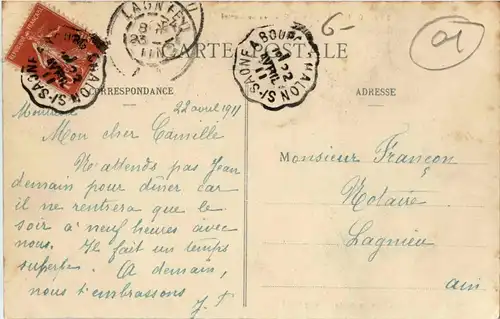 LAGNIEU
6-
01
CARTE POSTALE
BOURG
CHALON-S/-SAONE
22
AVRIL
11
CORRESPONDANCE
ADRESSE
22 avril 1911
Mon cher Camille
Ne attends pas Jean
demain pour dîner car
il ne rentrera que le
soir à neuf heures avec
nous. Il fait un temps
superbe. A demain,
nous t'embrassons
J. F
Monsieur Françon
Notaire
Lagnieu
Ain